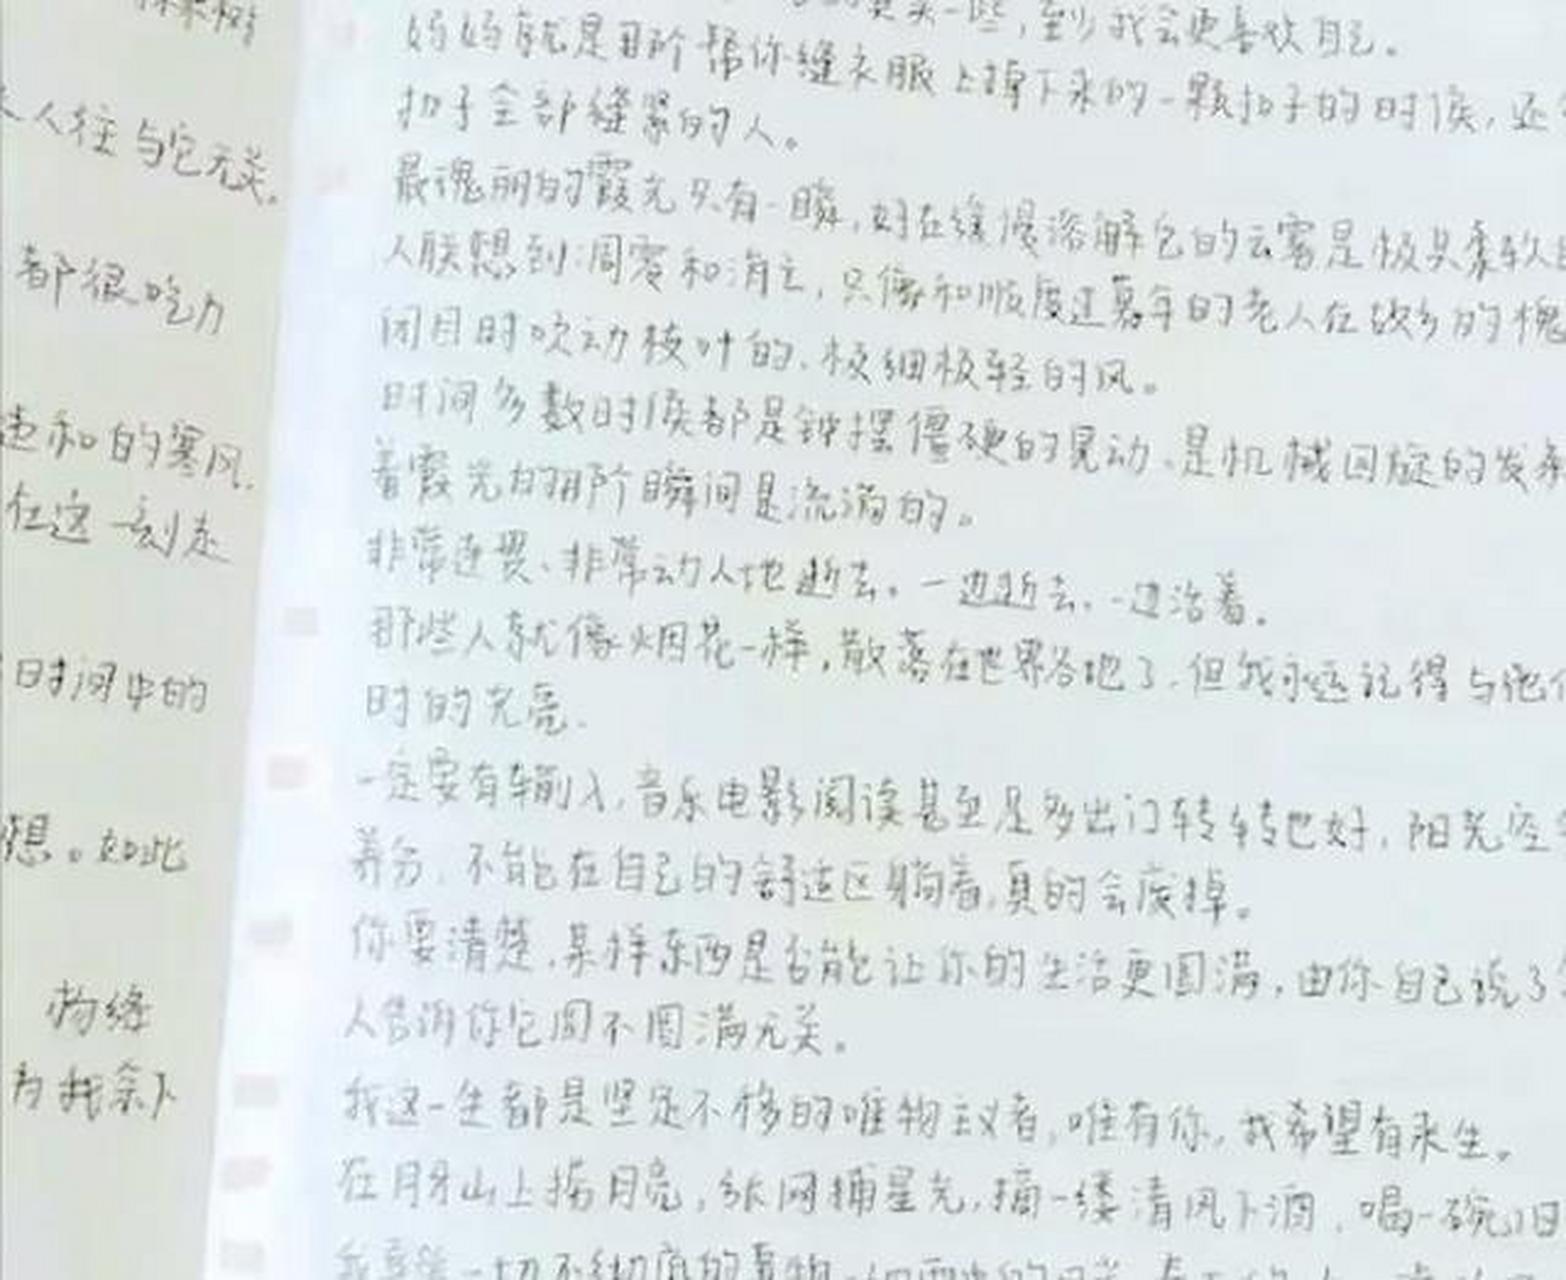 人往与它无关。
都很吃力
违和的寒风.
在这一刻走
时间中的
想。如此
的缝
为我余下
一些,至少我会更喜欢自己。
妈妈就是那个帮你缝衣服上掉下来的一颗扣子的时候,还
扣子全部缝紧的人。
最瑰丽的霞光只有一瞬,好在缓慢溶解它的云雾是极其柔软
人联想到凋零和消亡,只像和顺度过暮年的老人在故乡的槐
闭目时吹动枝叶的、极细极轻的风。
时间多数时候都是钟摆僵硬的晃动、是机械回旋的发条
着霞光的那个瞬间是流淌的。
非常连贯、非常动人地逝去。一边逝去、一边活着.
那些人就像烟花一样,散落在世界各地了.但我永远记得与他
时的光亮.
一定要有输入,音乐电影阅读甚至是多出门转转也好,阳光空
养分,不能在自己的舒适区躺着,真的会废掉。
你要清楚,某样东西是否能让你的生活更圆满,由你自己说了
人告诉你它圆不圆满无关。
我这一生都是坚定不移的唯物主义者,唯有你,我希望有来生。
在月牙山上捞月亮,张网捕星光,摘一缕清风下酒,喝一碗旧
一切不彻底的事物